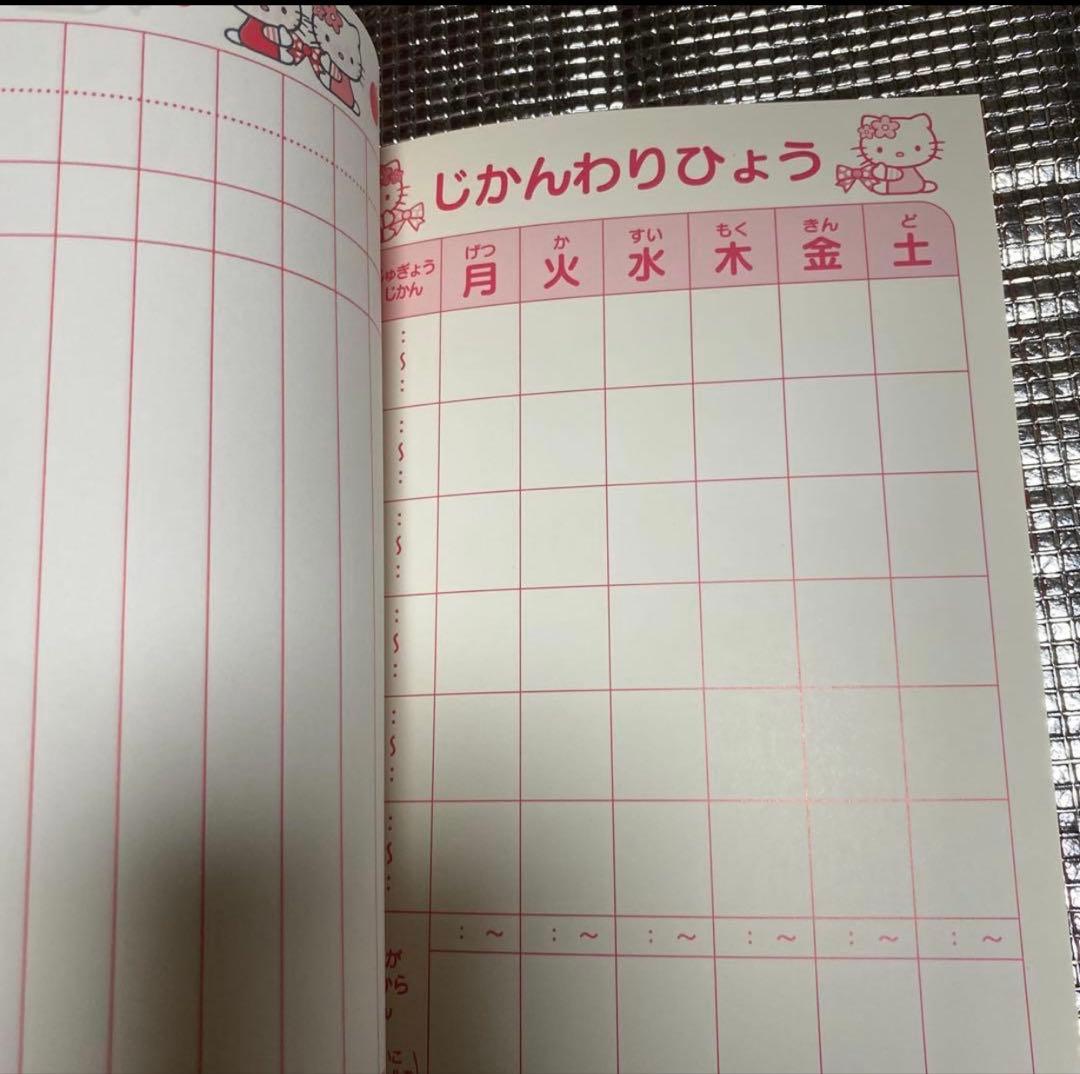 じかんわりひょう
げつ か すい もく きん ど
じゅぎょう 月 火 水 木 金 土
じかん
: ~ :
: ~ :
: ~ :
: ~ :
: ~ :
: ~ :
: ~ : ~ : ~ : ~ : ~ : ~